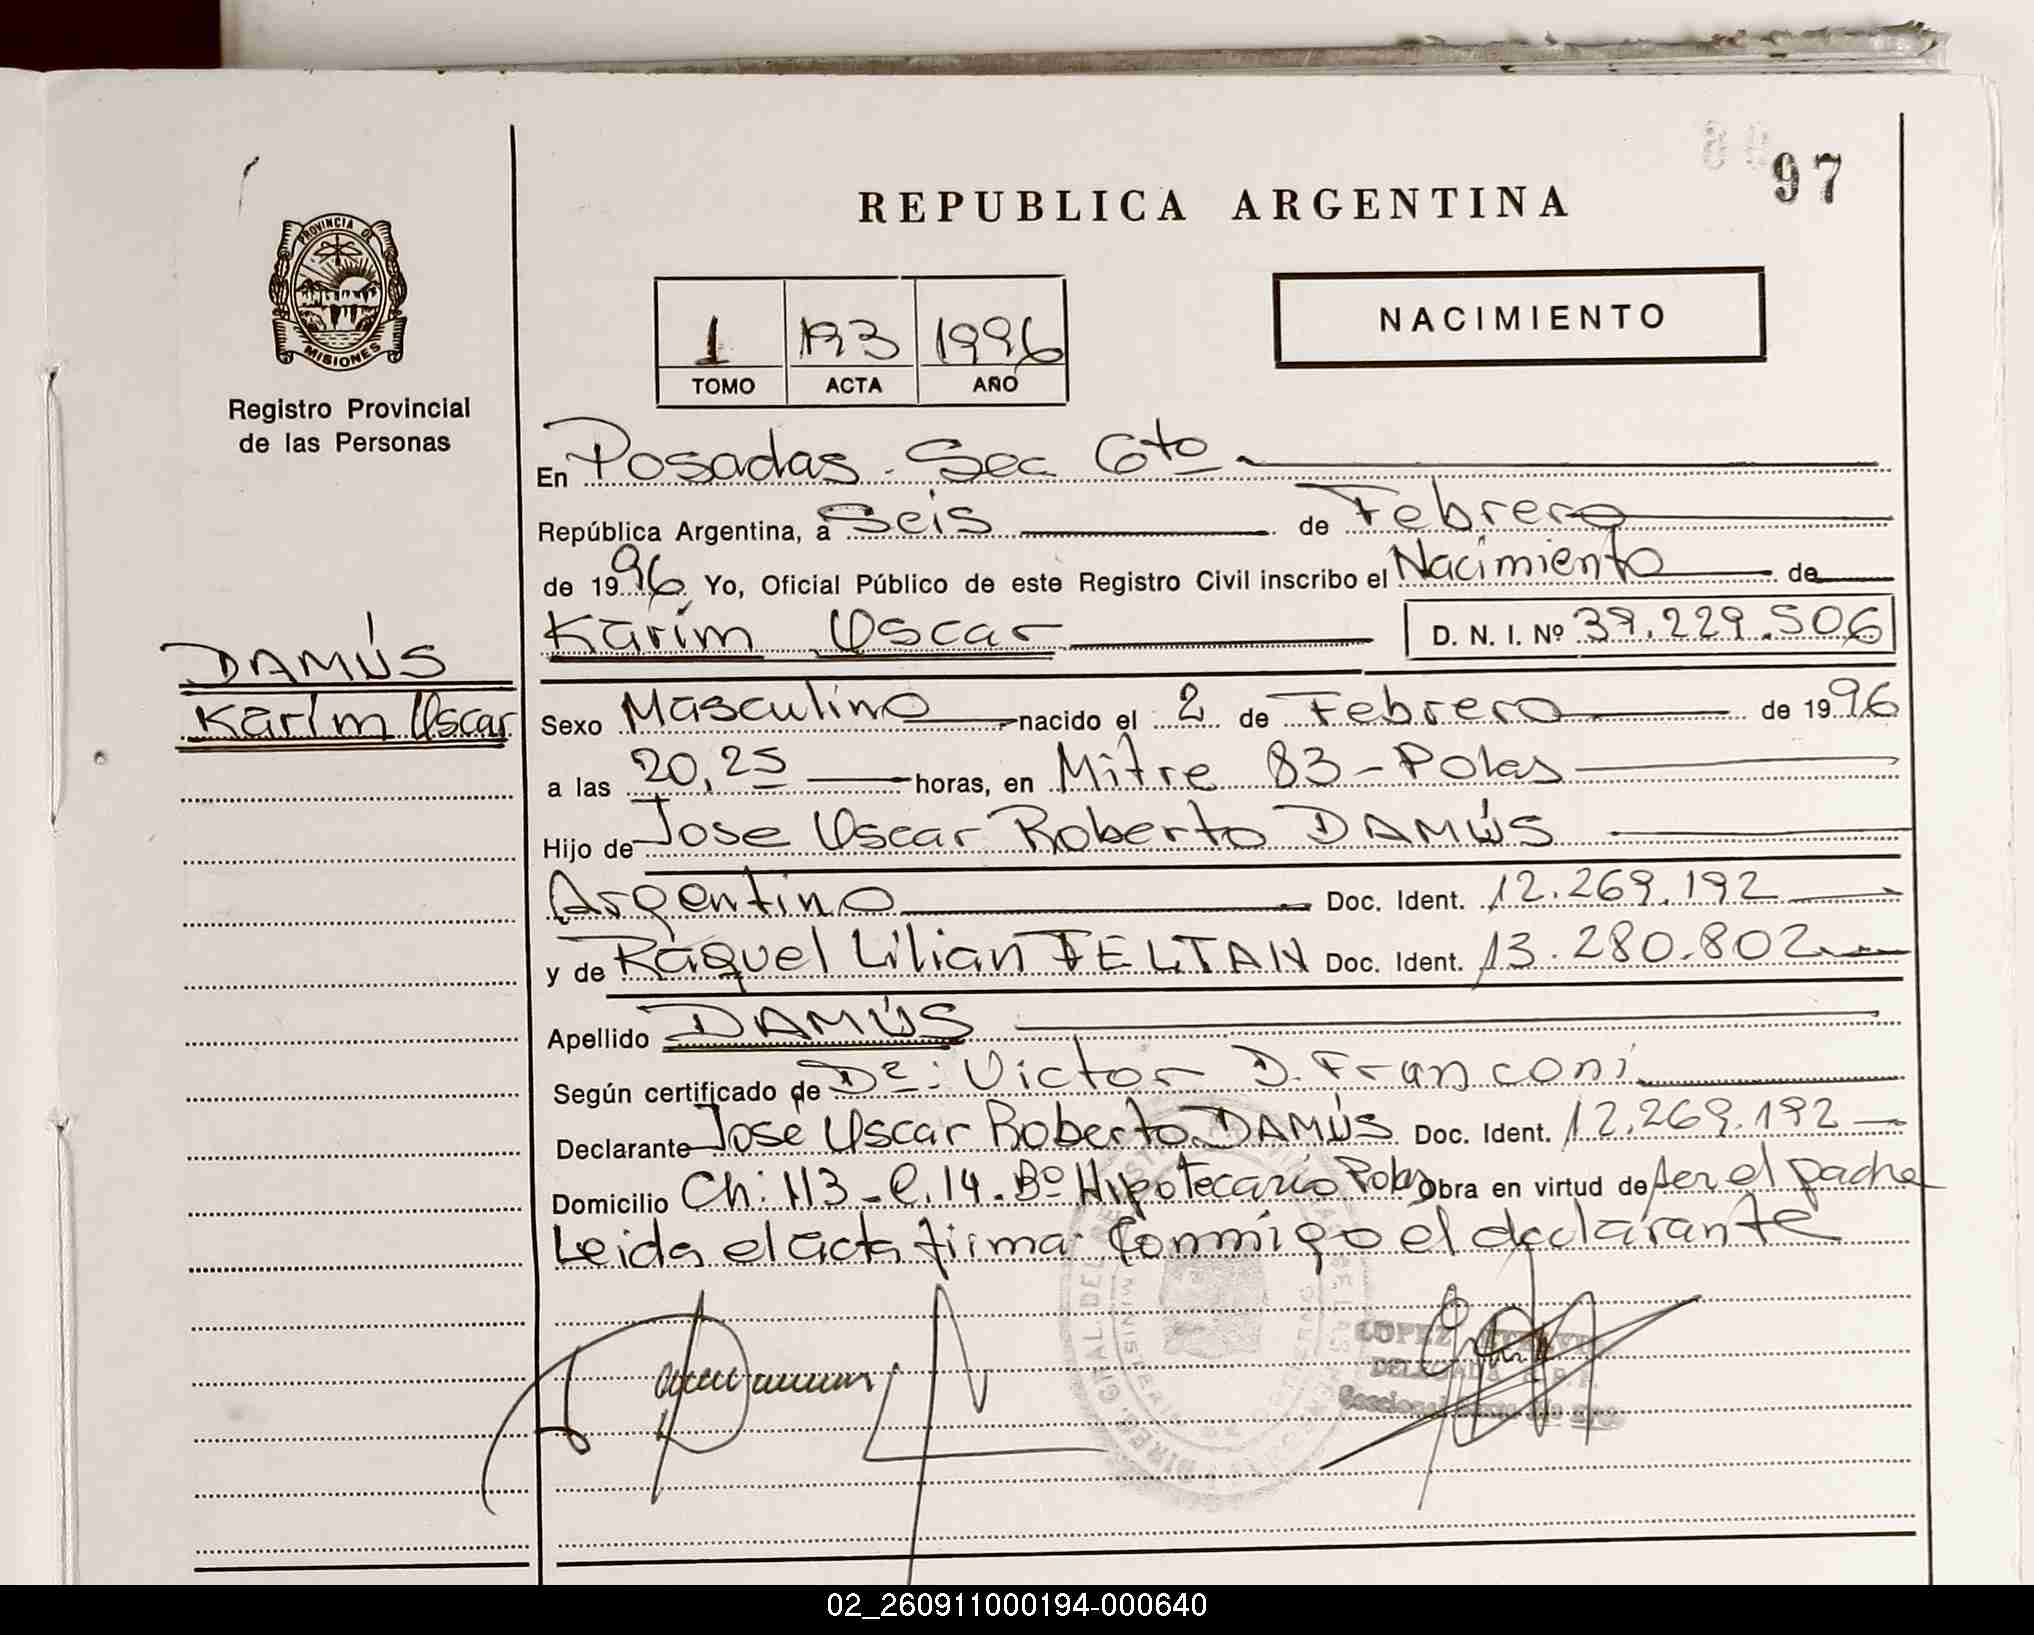 97
REPUBLICA ARGENTINA
PROVINCIA DE
MISIONES
Registro Provincial
de las Personas
NACIMIENTO
1 193 1996
TOMO ACTA AÑO
En Posadas - Sec 6to
República Argentina, a Seis de Febrero
de 1996 Yo, Oficial Público de este Registro Civil inscribo el Nacimiento de
Karim Oscar D. N. I. Nº 39.229.506
DAMÚS
Karim Oscar
Sexo Masculino nacido el 2 de Febrero de 1996
a las 20,25 horas, en Mitre 83 - Pdas
Hijo de Jose Oscar Roberto DAMÚS
Argentino Doc. Ident. 12.269.192
y de Raquel Lilian FELTAN Doc. Ident. 13.280.802
Apellido DAMÚS
Según certificado de Dr: Victor D. Franconi
Declarante José Oscar Roberto DAMÚS Doc. Ident. 12.269.192
Domicilio Ch: 113 - C. 14 - Bº Hipotecario Pdas Obra en virtud de ser el padre
Leida el acta firma Conmigo el declarante
LOPEZ
DELEGADA
02_260911000194-000640